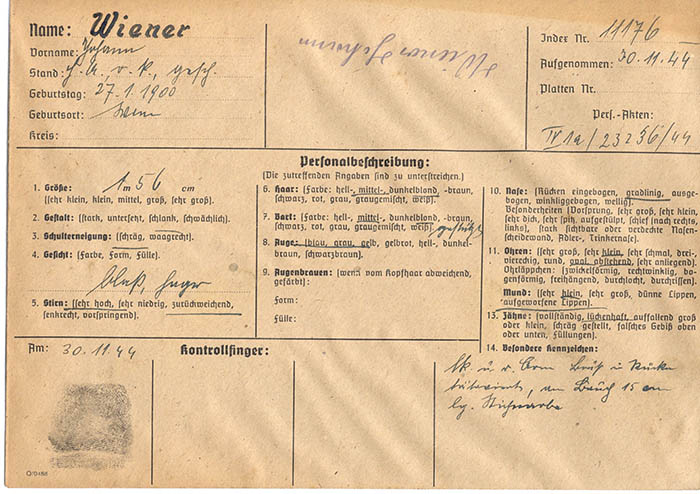 Name: Wiener
Vorname: Johann
Stand: H. A., r. k., gesch.
Geburtstag: 27.1.1900
Geburtsort: Wien
Kreis:
Wiener Johann
Index Nr. 11176
Aufgenommen: 30.11.44
Platten Nr.
Pers.-Akten:
IV 1a / 23256/44
Personalbeschreibung:
(Die zutreffenden Angaben sind zu unterstreichen.)
1. Größe: 1 m 56 cm
(sehr klein, klein, mittel, groß, sehr groß).
2. Gestalt: (stark, untersetzt, schlank, schwächlich).
3. Schulterneigung: (schräg, waagrecht).
4. Gesicht: (Farbe, Form, Fülle).
blaß, hager
5. Stirn: (sehr hoch, sehr niedrig, zurückweichend,
senkrecht, vorspringend).
6. Haar: (Farbe: hell-, mittel-, dunkelblond, -braun,
schwarz, rot, grau, graugemischt, weiß).
7. Bart: (Farbe: hell-, mittel-, dunkelblond, -braun,
schwarz, rot, grau, graugemischt, weiß). gestutzt
8. Auge: (blau, grau, gelb, gelbrot, hell-, dunkel-
braun, schwarzbraun).
9. Augenbrauen: (wenn vom Kopfhaar abweichend,
gefärbt):
Form:
Fülle:
10. Nase: (Rücken eingebogen, gradlinig, ausge-
bogen, winkliggebogen, wellig).
Besonderheiten (Vorsprung, sehr groß, sehr klein,
sehr dick, sehr spitz, aufgestülpt, schief (nach rechts,
links), stark sichtbare oder verdeckte Nasen-
scheidewand, Adler-, Trinkernase).
11. Ohren: (sehr groß, sehr klein, sehr schmal, drei-
viereckig, rund, oval, abstehend, sehr anliegend).
Ohrläppchen: (zwickelförmig, rechtwinklig, bo-
genförmig, freihängend, durchlocht, durchrissen).
Mund: (sehr klein, sehr groß, dünne Lippen,
aufgeworfene Lippen).
13. Zähne: (vollständig, lückenhaft, auffallend groß
oder klein, schräg gestellt, falsches Gebiß oben
oder unten, Füllungen).
14. Besondere Kennzeichen:
lk. u. r. Arm Brust u. Rücken
tätowiert, am Bauch 15 cm
lg. Stichnarbe
Am: 30.11.44
Kontrollfinger: